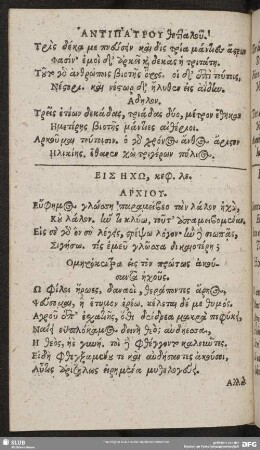 ΑΝΤΙΠΑΤΡΟΥ θεσσαλοῦ.
Τρὶς δέκα με πνεύσειν καὶ δὶς τρία μάντιες ἄστρων
Φασίν. ἐμοὶ δ' ἀρκεῖ καὶ δεκὰς ἡ τριτάτη.
Τοῦτο γὰρ ἀνθρώποις βιοτῆς ὅρος. οἱ δ' ἐπὶ τούτοις,
Νέστωρ. καὶ νέστωρ δ' ἤλυθεν εἰς ἀίδην.
Ἄδηλον.
Τρεῖς ἐτέων δεκάδας, τριάδας δύο, μέτρον ἔθηκαν
Ἡμετέρης βιοτῆς μάντιες αἰθέριοι.
Ἀρκοῦμαι τούτοισιν. ὁ γὰρ χρόνος ἄνθος ἄριστον
Ἡλικίης. ἔθανεν χὠ τριγέρων πύλιος.
ΕΙΣ ΗΧΩ, κεφ. λε.
ΑΡΧΙΟΥ.
Εὔφημος γλώσσῃ παραμείβεο τὰν λάλον ἠχὼ,
Κοὐ λάλον. ἤν τι κλύω, τοῦτ' ἀπαμειβομέναν.
Εἰς σὲ γὰρ ὃν σὺ λέγεις, στρέψω λόγον. ἢν δὲ σιωπᾷς,
Σιγήσω. τίς ἐμεῦ γλῶσσα δικαιοτέρη;
Ὁμηρόκεντρα εἰς τὸν πρώτως ἀκού-
σαντα ἠχοῦς.
Ὦ φίλοι ἥρωες, δαναοὶ, θεράποντες ἄρηος,
Ψεύσομαι, ἢ ἔτυμον ἐρέω, κέλεται δέ με θυμός,
Ἀγροῦ ἐπ' ἐσχατιῆς, ὅθι δένδρεα μακρὰ πεφύκει,
Ναίει εὐπλόκαμος δεινὴ θεὸς αὐδήεσσα,
Ἢ θεὸς, ἠὲ γυνή. τοὶ δὲ φθέγγοντο καλεῦντες.
Εἰ δὲ φθεγξαμένου τευ καὶ αὐδήσαντος ἀκούσει,
Αὖθις ἀριζήλως εἰρημένα μυθολογεύει.
Ἀλλὰ
SLUB
DFG